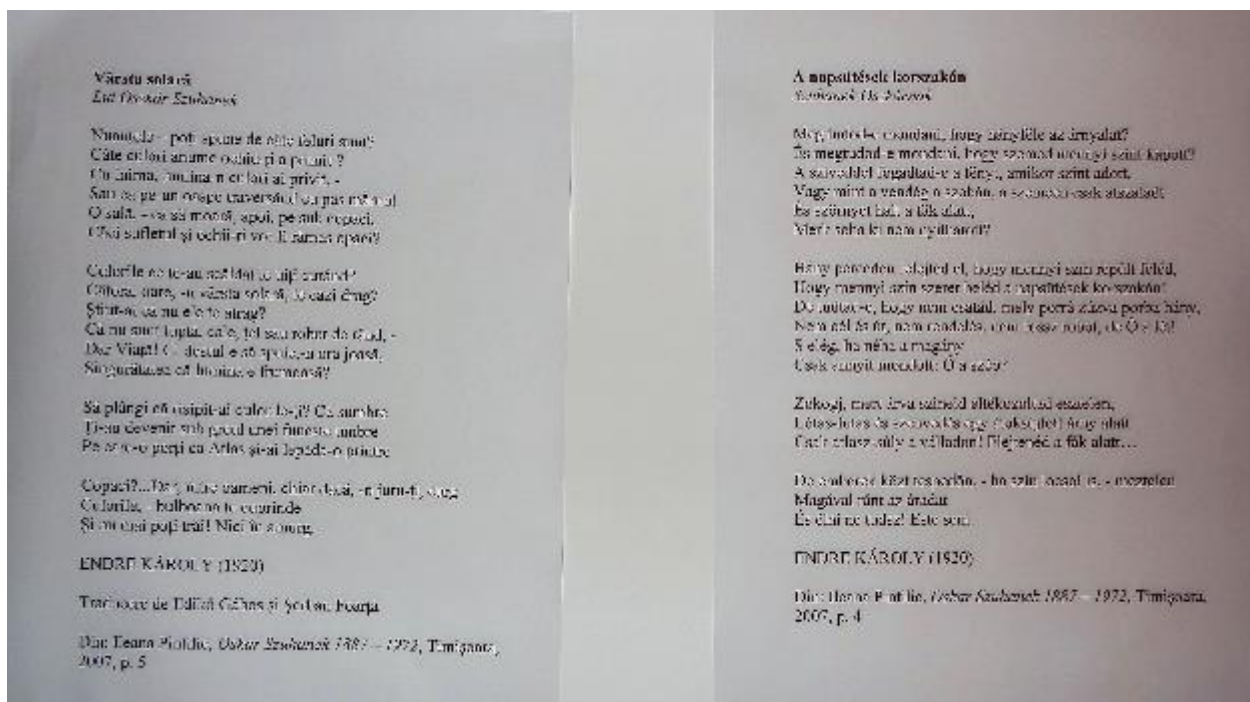 Vârsta solară
Lui Oskar Szuhanek
poți spune de câte feluri sunt?
Câte culori anume ochiu-ți a primit ?
Cu inima, lumina-n culori ai privit, -
Sau ca pe un oaspe traversând cu pas mărunt
O sală, - ca să moară, apoi, pe sub copaci,
sufletul și ochii-ți vor fi rămas opaci?
Culorile ce te-au scăldat le uiți curând?
oare, -n vârsta solară, le cazi drag?
Știut-ai că nu ele te atrag?
Că nu sunt luptă, cale, țel sau robot de rând, -
Dar Viață! Că destul e să spuie,-n ora joasă,
Singurătatea că lumina e frumoasă?
Să plângi că risipit-ai culorile-ți? Ce sumbre
Ți-au devenit sub greul unei funeste umbre
Pe care-o porți ca Atlas și-ai lepăda-o printre
Copaci?...Dar, între oameni, chiar dacă, -n juru-ți,
Culorile, - bulboana te cuprinde
Și nu mai poți trăi! Nici în amurg.
ENDRE KÁROLY (1920)
Traducere de Ildikó Gábos și Șerban Foarță
Din: Ileana Pintilie, Oskar Szuhanek 1887 – 1972, Timișoara,
2007, p. 5
A napsütések korszakán
Szuhanek Oszkárnak
Meg tudod-e mondani, hogy hányféle az árnyalat?
És megtudod-e mondani, hogy szemed mennyi színt kapott?
A szíveddel fogadtad-e a fényt, amikor színt adott,
Vagy mint a vendég a szobán, a szemeden csak átszaladt
És szörnyet halt a fák alatt,
Mert soha ki nem nyílt
Hány percedên felejted el, hogy mennyi szín repült feléd,
Hogy mennyi szín szeret beléd a napsütések korszakán?
De tudtad-e, hogy nem család, mely porrá zúzva porba hány,
Nem cél és út, nem rendelés, nem rossz robot, de Ő a lét!
S elég, ha néha a magány
Csak annyit mondott: Ő a szép?
Zokogj, mert árva színeid eltékozoltad esztelen,
egy árny alatt
súly a válladon! Elejtenéd a fák alatt…
De emberek közt
Magával ránt az áradat
És élni ne tudsz! Este sem.
ENDRE KÁROLY (1920)
Din: Ileana Pintilie, Oskar Szuhanek 1887 – 1972, Timișoara,
2007, p. 4